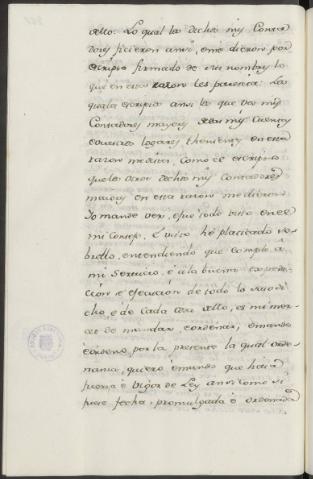 ello: Lo qual los dichos mis Conta-
dores ficieron ansi, é me dieron por
escripto firmado de sus nombres lo
que en esta razon les parecia: La
qual escripto ansi lo que los mis
Contadores mayores de las mis Cuentas
é sus lugares thenientes en esta
razon me dieron, como el escripto
que los otros dichos mis Contadores
maiores en esta razon me dieron
Yo mande ver, é fue todo visto en el
mi Consejo, é visto hé platicado so-
bre ello, entendiendo que cumple á
mi Servicio, é á la buena expedi-
cion é ejecucion de todo lo suso di-
cho é de cada cosa dello, es mi mer-
ced de mandar, é ordenar, é mando
é ordeno por la presente la qual orde-
nanza, quiero é mando que haia
fuerza é vigor de Ley ansi como si
fuese fecha, é promulgada é ordenada